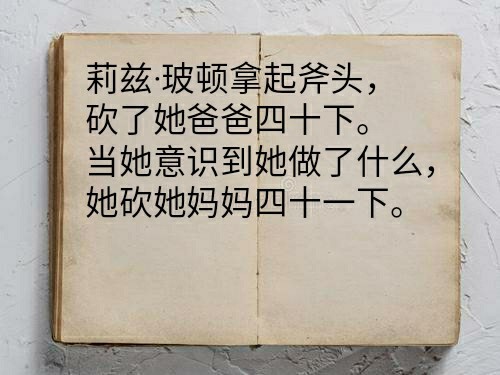 莉兹·玻顿拿起斧头，
砍了她爸爸四十下。
当她意识到她做了什么，
她砍她妈妈四十一下。